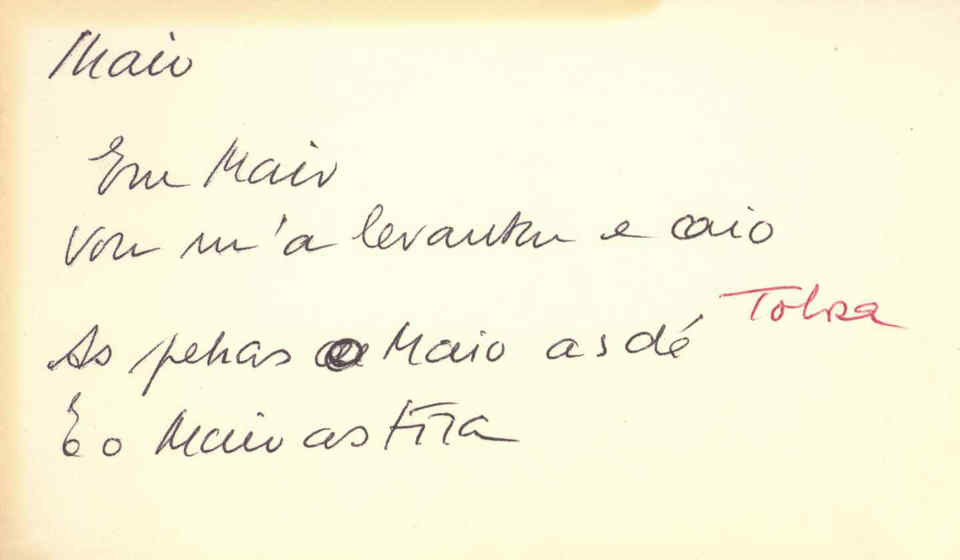 Maio
Em Maio
Vou m'a levantar e caio
As penas o Maio as dé
E o Maio as tira